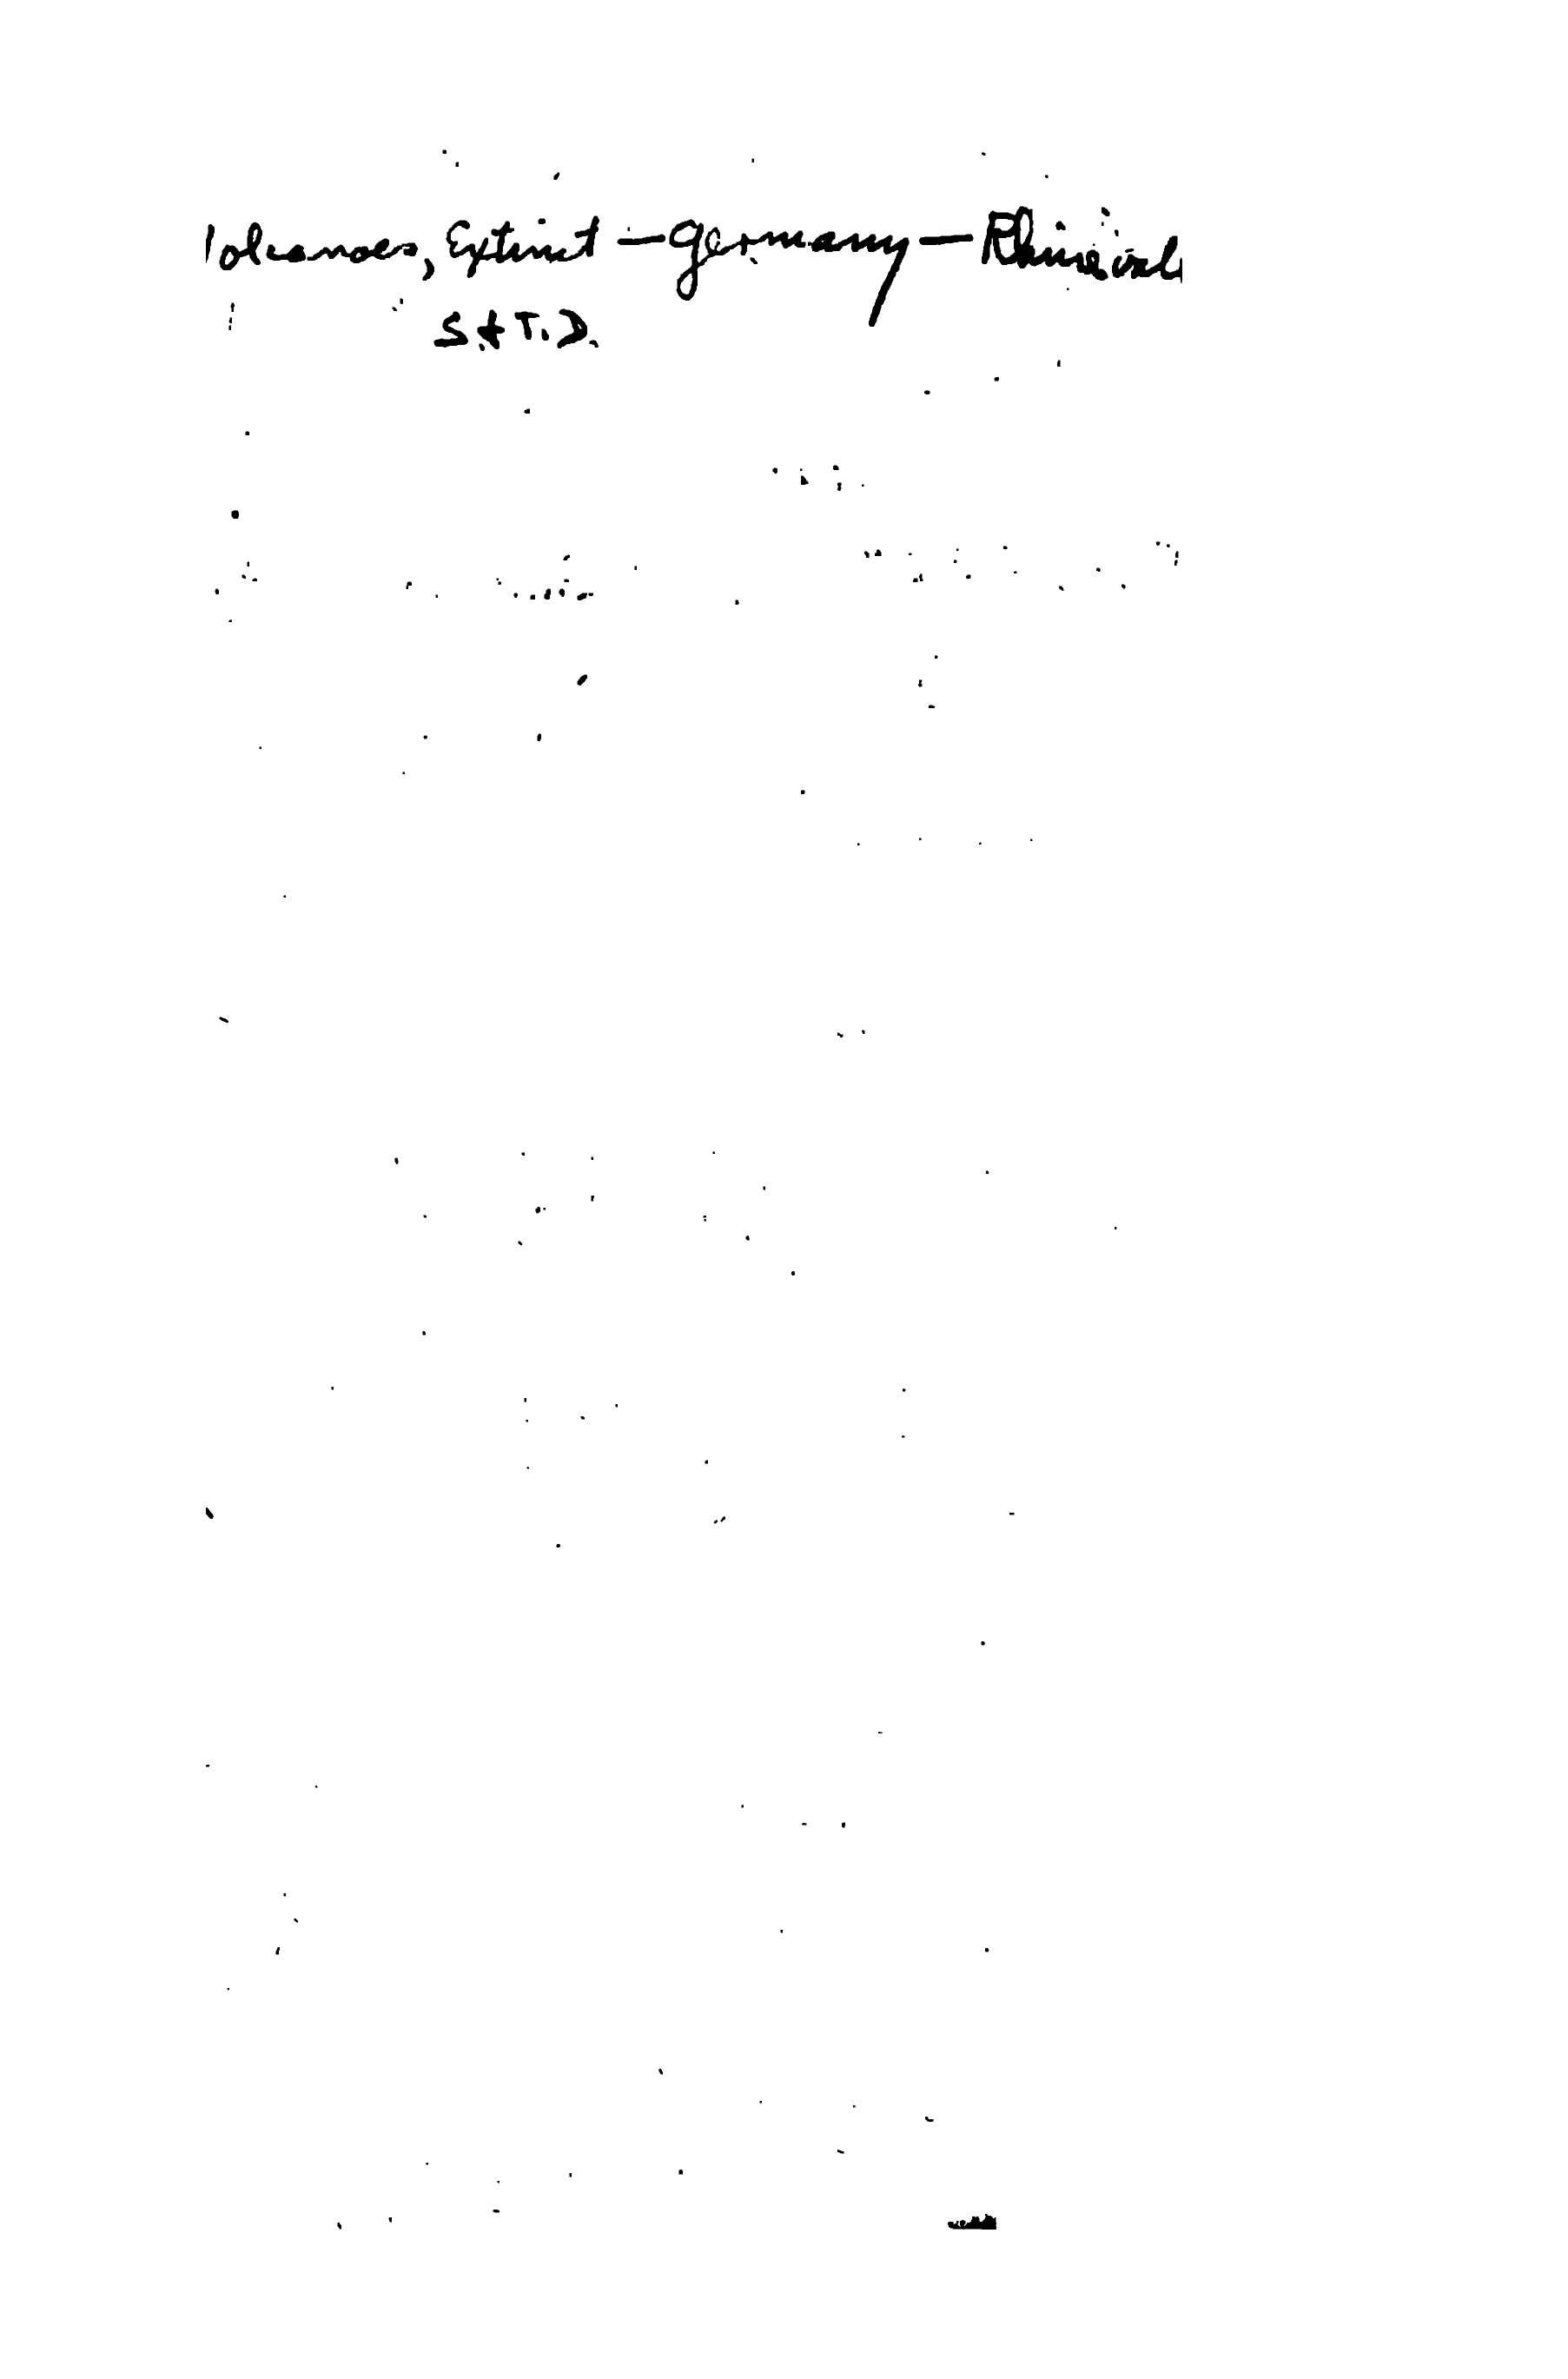 Volcanoes, Extinct — Germany — Rhine
S. & T. D.